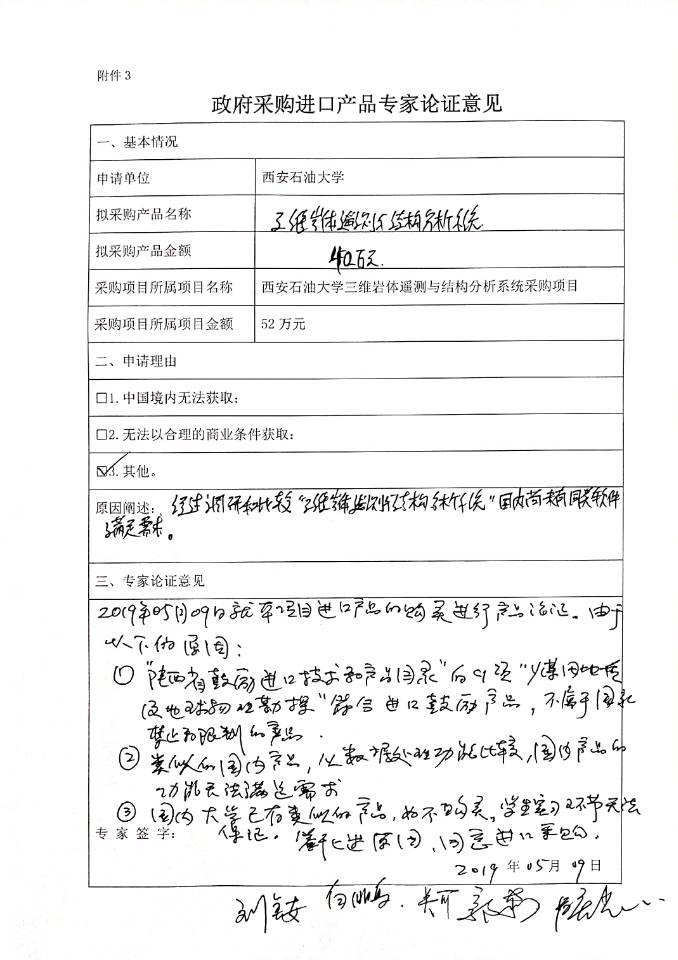 附件 3
政府采购进口产品专家论证意见
一、基本情况
申请单位 西安石油大学
拟采购产品名称 三维岩体遥测与结构分析系统
拟采购产品金额 40万元.
采购项目所属项目名称 西安石油大学三维岩体遥测与结构分析系统采购项目
采购项目所属项目金额 52 万元
二、申请理由
□1.中国境内无法获取:
□2.无法以合理的商业条件获取:
☑3.其他。
原因阐述: 经过调研和比较“三维岩体监测与结构分析系统”国内尚未有同类软件
满足需求。
三、专家论证意见
2019年05月09日就本项目进口产品的购买进行产品论证。由于
以下的原因:
① “陕西省鼓励进口技术和产品目录”的91项“煤田地质
及地球物理勘探”符合进口鼓励产品,不属于国家
禁止和限制的产品.
② 类似的国内产品,从数据处理功能比较,国内产品的
功能无法满足需求
③ 国内大学已有类似的产品,如不购买,学生实习环节无法
专 家 签 字: 保证。鉴于上述原因,同意进口采购.
2019 年 05月 09 日